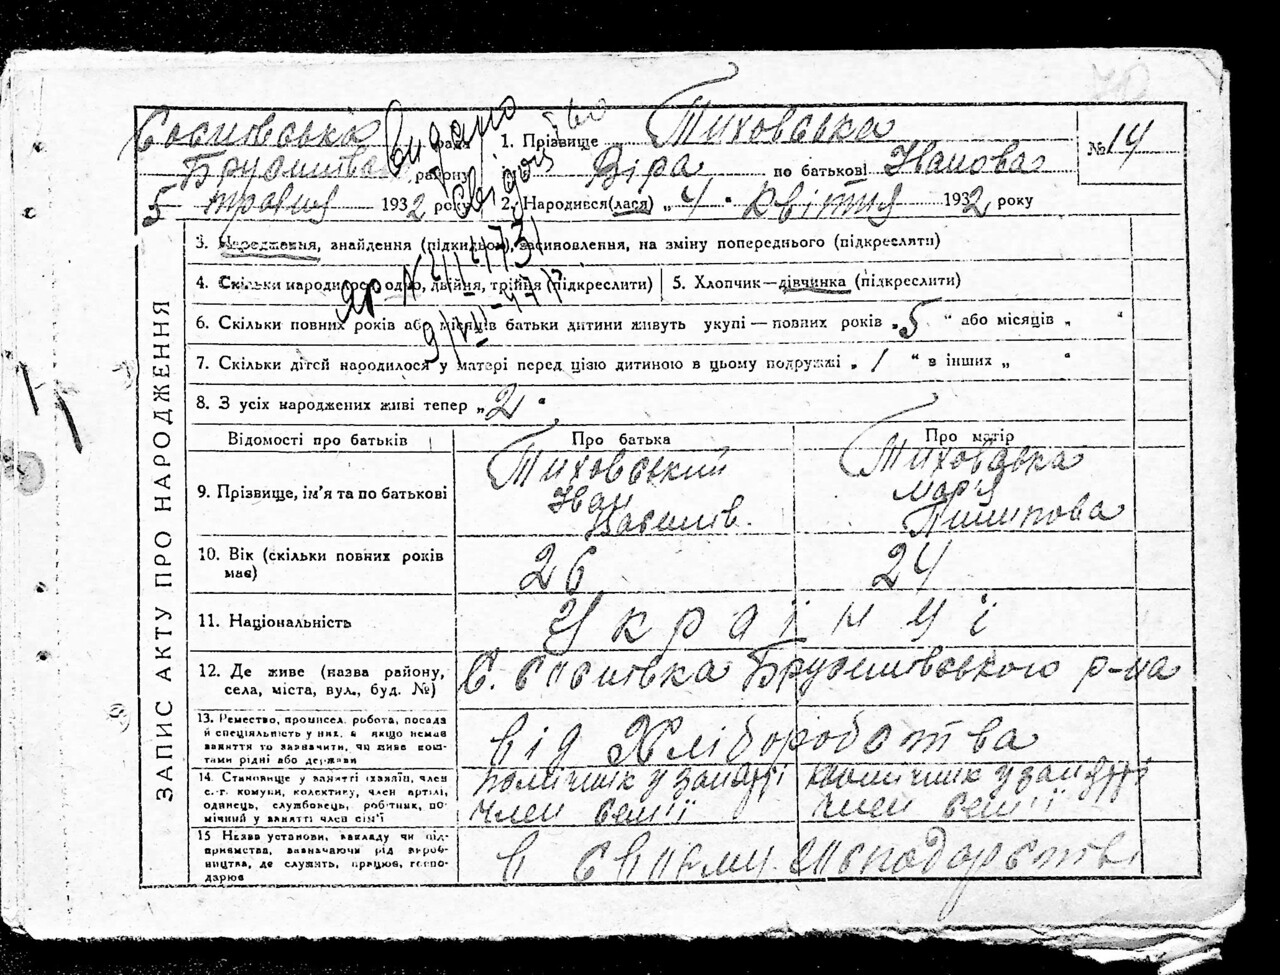 70
Соснівська рада
Брусилівськ. району
5 травня 1932 року
Видано свідоцтво
ЯР № 211173
9/VII-47 р.
1. Прізвище Тиховська
Віра по батькові Іванова
2. Народився(лася) „4" квітня 1932 року
№ 14
ЗАПИС АКТУ ПРО НАРОДЖЕННЯ
3. Народження, знайдення (підкидьок), засиновлення, на зміну попереднього (підкреслити)
4. Скільки народилося одно, двійня, трійня (підкреслити)
5. Хлопчик—дівчинка (підкреслити)
6. Скільки повних років або місяців батьки дитини живуть укупі — повних років „5" або місяців „ "
7. Скільки дітей народилося у матері перед цією дитиною в цьому подружжі „1" в інших „ "
8. З усіх народжених живі тепер „2"
Відомості про батьків
Про батька
Про матір
9. Прізвище, ім'я та по батькові
Тиховський
Іван
Василів.
Тиховська
Мар'я
Пилипова
10. Вік (скільки повних років має)
26
24
11. Національність
Українці
12. Де живе (назва району, села, міста, вул., буд. №)
С. Соснівка Брусилівського р-на
13. Ремество, промисел, робота, посада й спеціальність у них, а якщо немає заняття то зазначити, чи живе коштами рідні або держави
від Хліборобства
14. Становище у занятті (хазяїн, член с.-г. комуни, колективу, член артілі, одинець, службовець, робітник, помічний у занятті член сім'ї
помічник у занятті
член семії
помічник у занятті
член семії
15 Назва установи, закладу чи підприємства, зазначаючи рід виробництва, де служить, працює, господарює
в своєму господарстві